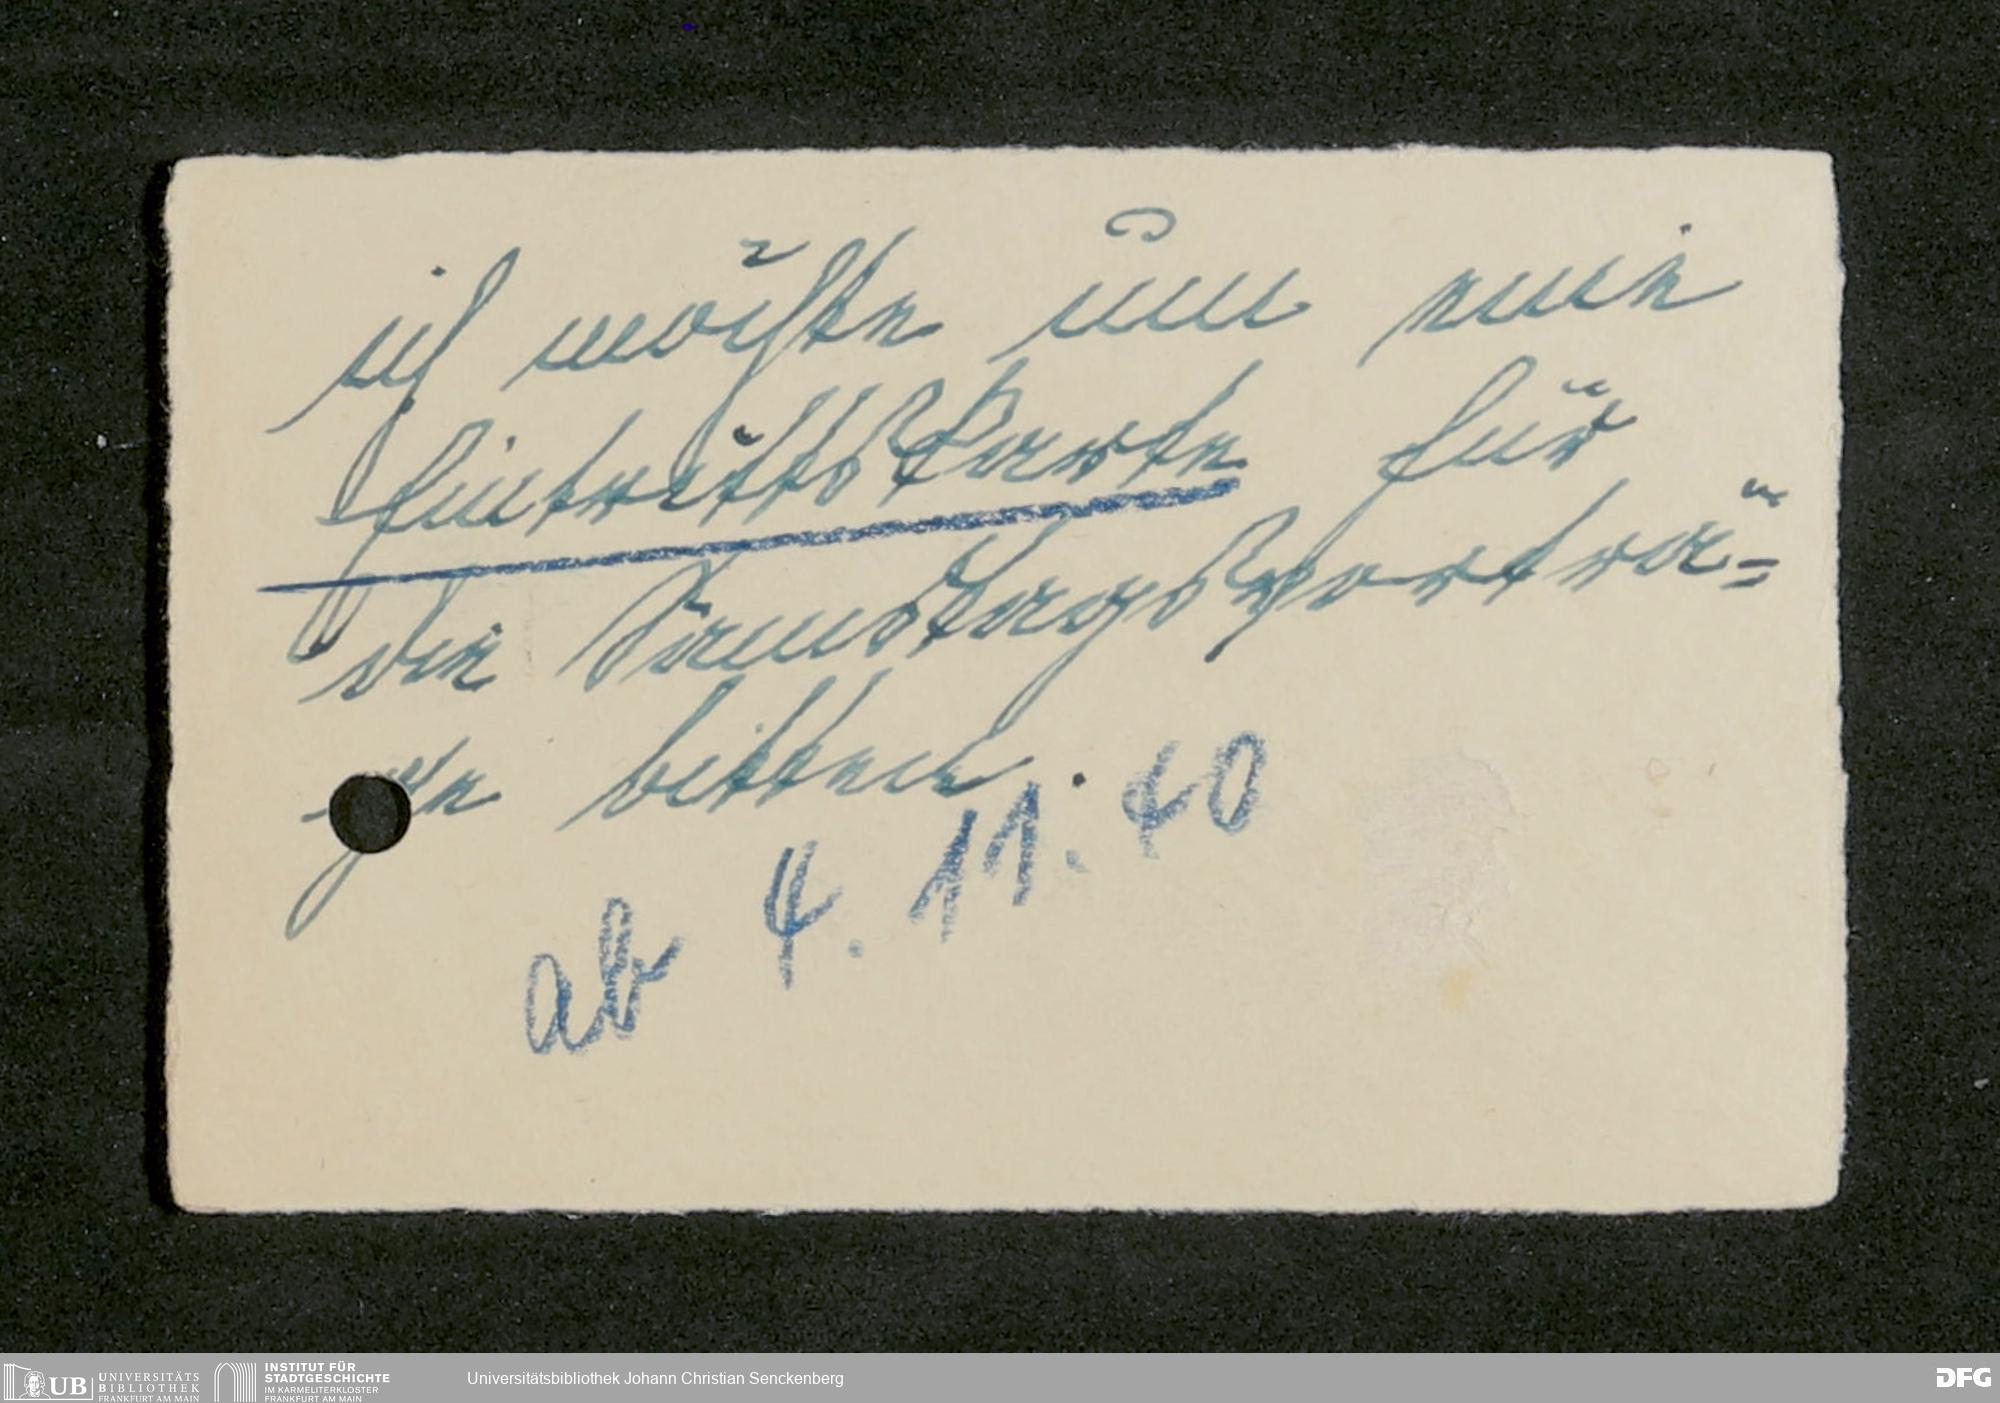 ich möchte um eine
Eintrittskarte für
die Samstagsvorträ=
ge bitten.
ab 4. 11. 40
UB UNIVERSITÄTS
BIBLIOTHEK
FRANKFURT AM MAIN
INSTITUT FÜR
STADTGESCHICHTE
IM KARMELITERKLOSTER
FRANKFURT AM MAIN
Universitätsbibliothek Johann Christian Senckenberg
DFG